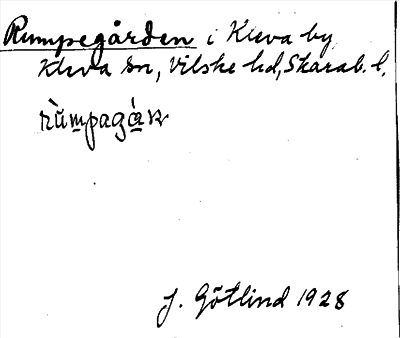 Rumpegården i Kleva by
Kleva sn, Vilske hd, Skarab. l.
rùmpagá̱ʀ
J. Götlind 1928